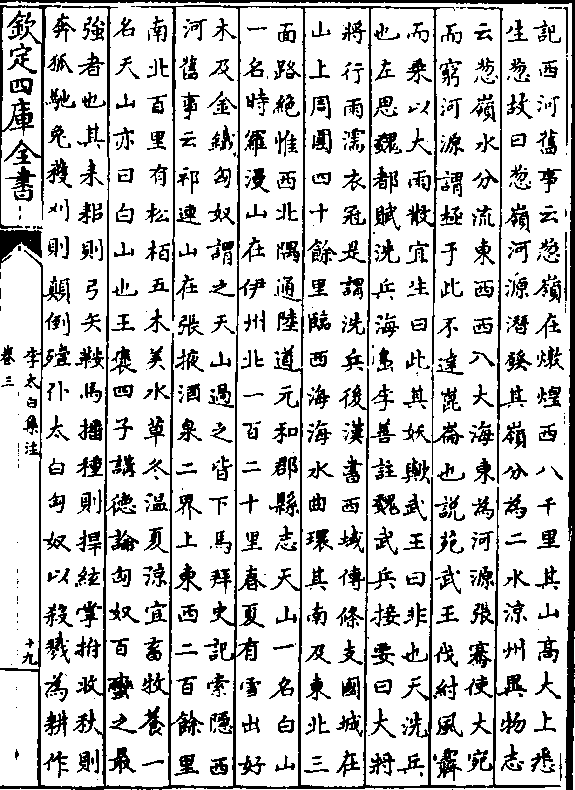 記西河舊事云葱嶺在燉煌西八千里其山髙大上悉
生葱故曰葱嶺河源潛發其嶺分為二水涼州異物志
云葱嶺水分流東西西入大海東為河源張騫使大宛
而窮河源謂極于此不達崑崙也説苑武王伐紂風霽
而乘以大雨散宜生曰此其妖歟武王曰非也天洗兵
也左思魏都賦洗兵海島李善註魏武兵接要曰大將
將行雨濡衣冠是謂洗兵後漢書西域傳條支國城在
山上周圍四十餘里臨西海海水曲環其南及東北三
面路絶惟西北隅通陸道元和郡縣志天山一名白山
一名時羅漫山在伊州北一百二十里春夏有雪出好
木及金鐵匈奴謂之天山過之皆下馬拜史記索隱西
河舊事云祁連山在張掖酒泉二界上東西二百餘里
南北百里有松栢五木美水草冬温夏涼宜畜牧養一
名天山亦曰白山也王褒四子講徳論匈奴百蠻之最
強者也其耒耜則弓矢鞍馬播種則捍絃掌拊收秋則
奔狐馳兎穫刈則顛倒殪仆太白匈奴以殺戮為耕作
欽定四庫全書
李太白集注
卷三
十九